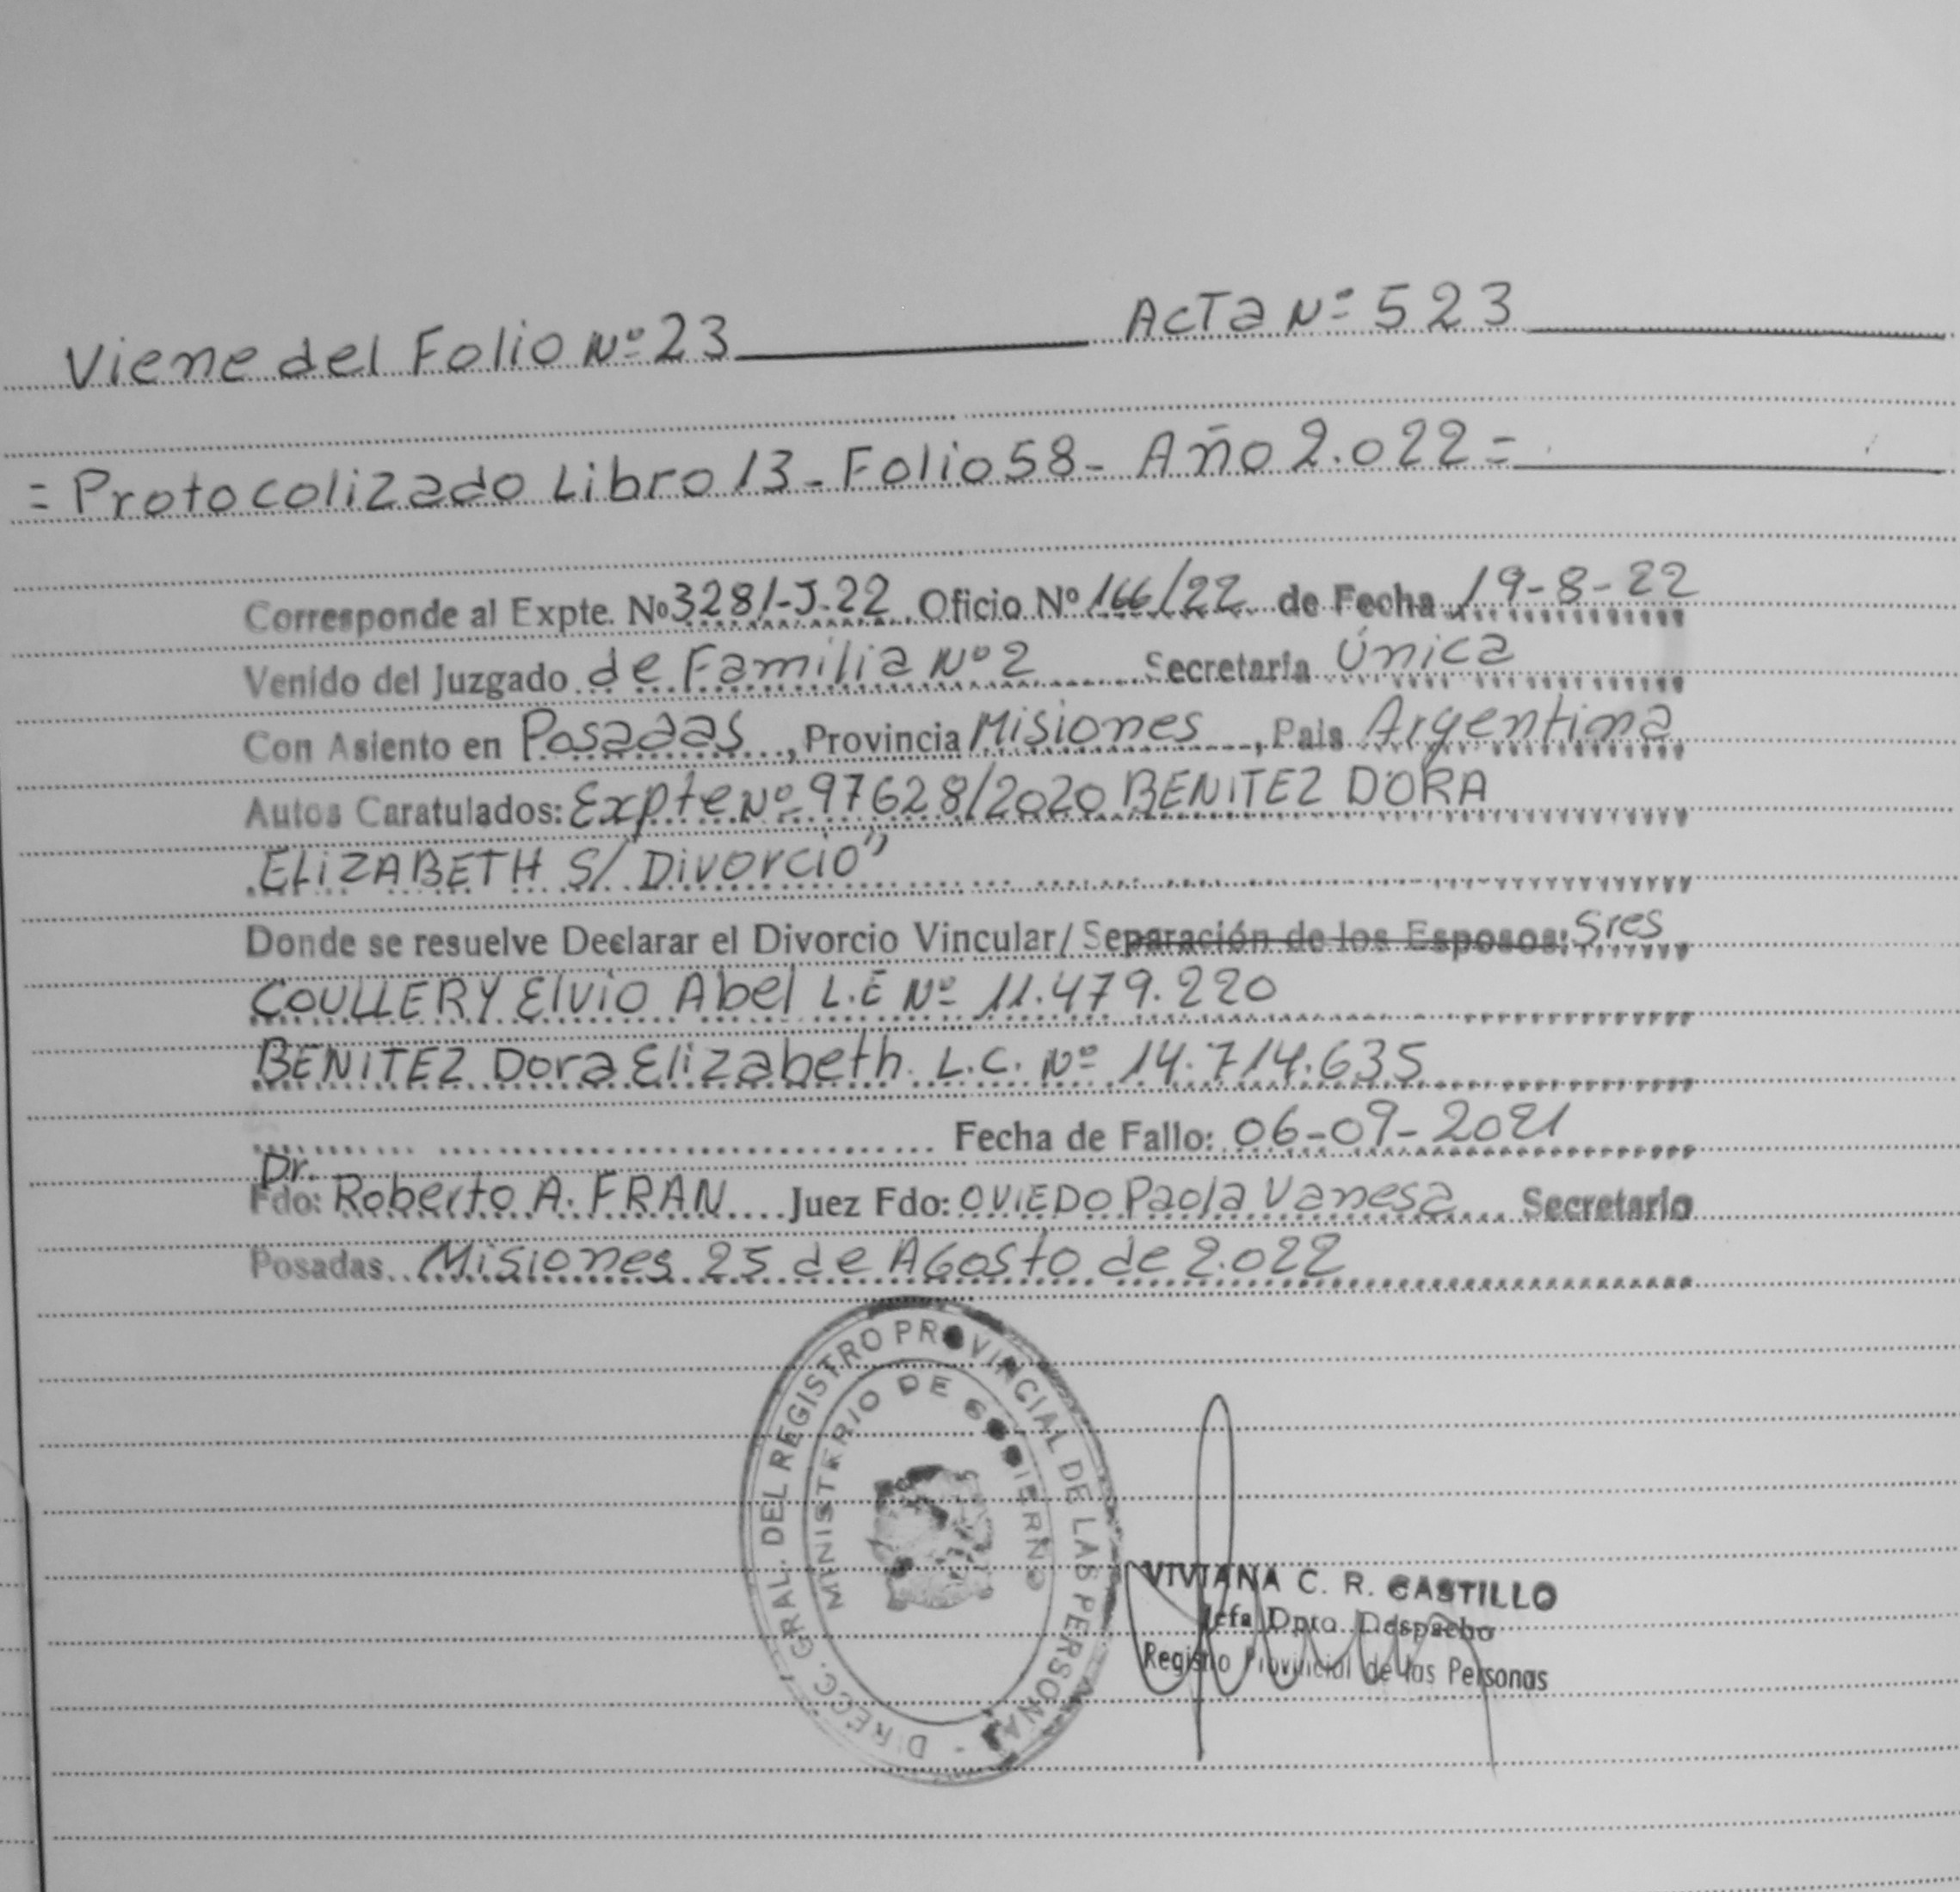 Viene del Folio Nº 23 Acta Nº 523
= Protocolizado Libro 13 - Folio 58 - Año 2.022 =
Corresponde al Expte. Nº 3281-J-22 Oficio Nº 166/22 de Fecha 19-8-22
Venido del Juzgado de Familia Nº 2 Secretaría Única
Con Asiento en Posadas, Provincia Misiones, País Argentina
Autos Caratulados: Expte Nº 97628/2020 BENITEZ DORA
ELIZABETH S/ Divorcio”
Donde se resuelve Declarar el Divorcio Vincular/ Separación de los Esposos: Sres
COULLERY Elvio Abel L.E Nº 11.479.220
BENITEZ Dora Elizabeth L.C. Nº 14.714.635
Fecha de Fallo: 06-09-2021
Dr.
Fdo: Roberto A. FRAN Juez Fdo: OVIEDO Paola Vanesa Secretario
Posadas Misiones 25 de Agosto de 2.022
DIRECC. GRAL. DEL REGISTRO PROVINCIAL DE LAS PERSONAS -
MINISTERIO DE GOBIERNO
VIVIANA C. R. CASTILLO
Jefa Dpto. Despacho
Registro Provincial de las Personas